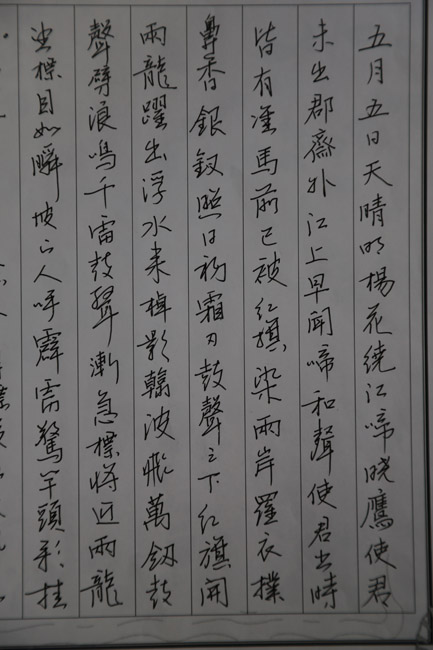 五月五日天晴明楊花繞江啼曉鷹使君
未出郡齋外江上早聞啼和聲使君出時
皆有准馬前已被紅旗染兩岸羅衣撲
鼻香銀釵照日初霜刃鼓聲三下紅旗開
兩龍躍出浮水來棹影翰波飛萬劔鼓
聲劈浪鳴千雷鼓聲漸急標將近兩龍
望標目如瞬坡上人呼霹雷驚竿頭彩挂